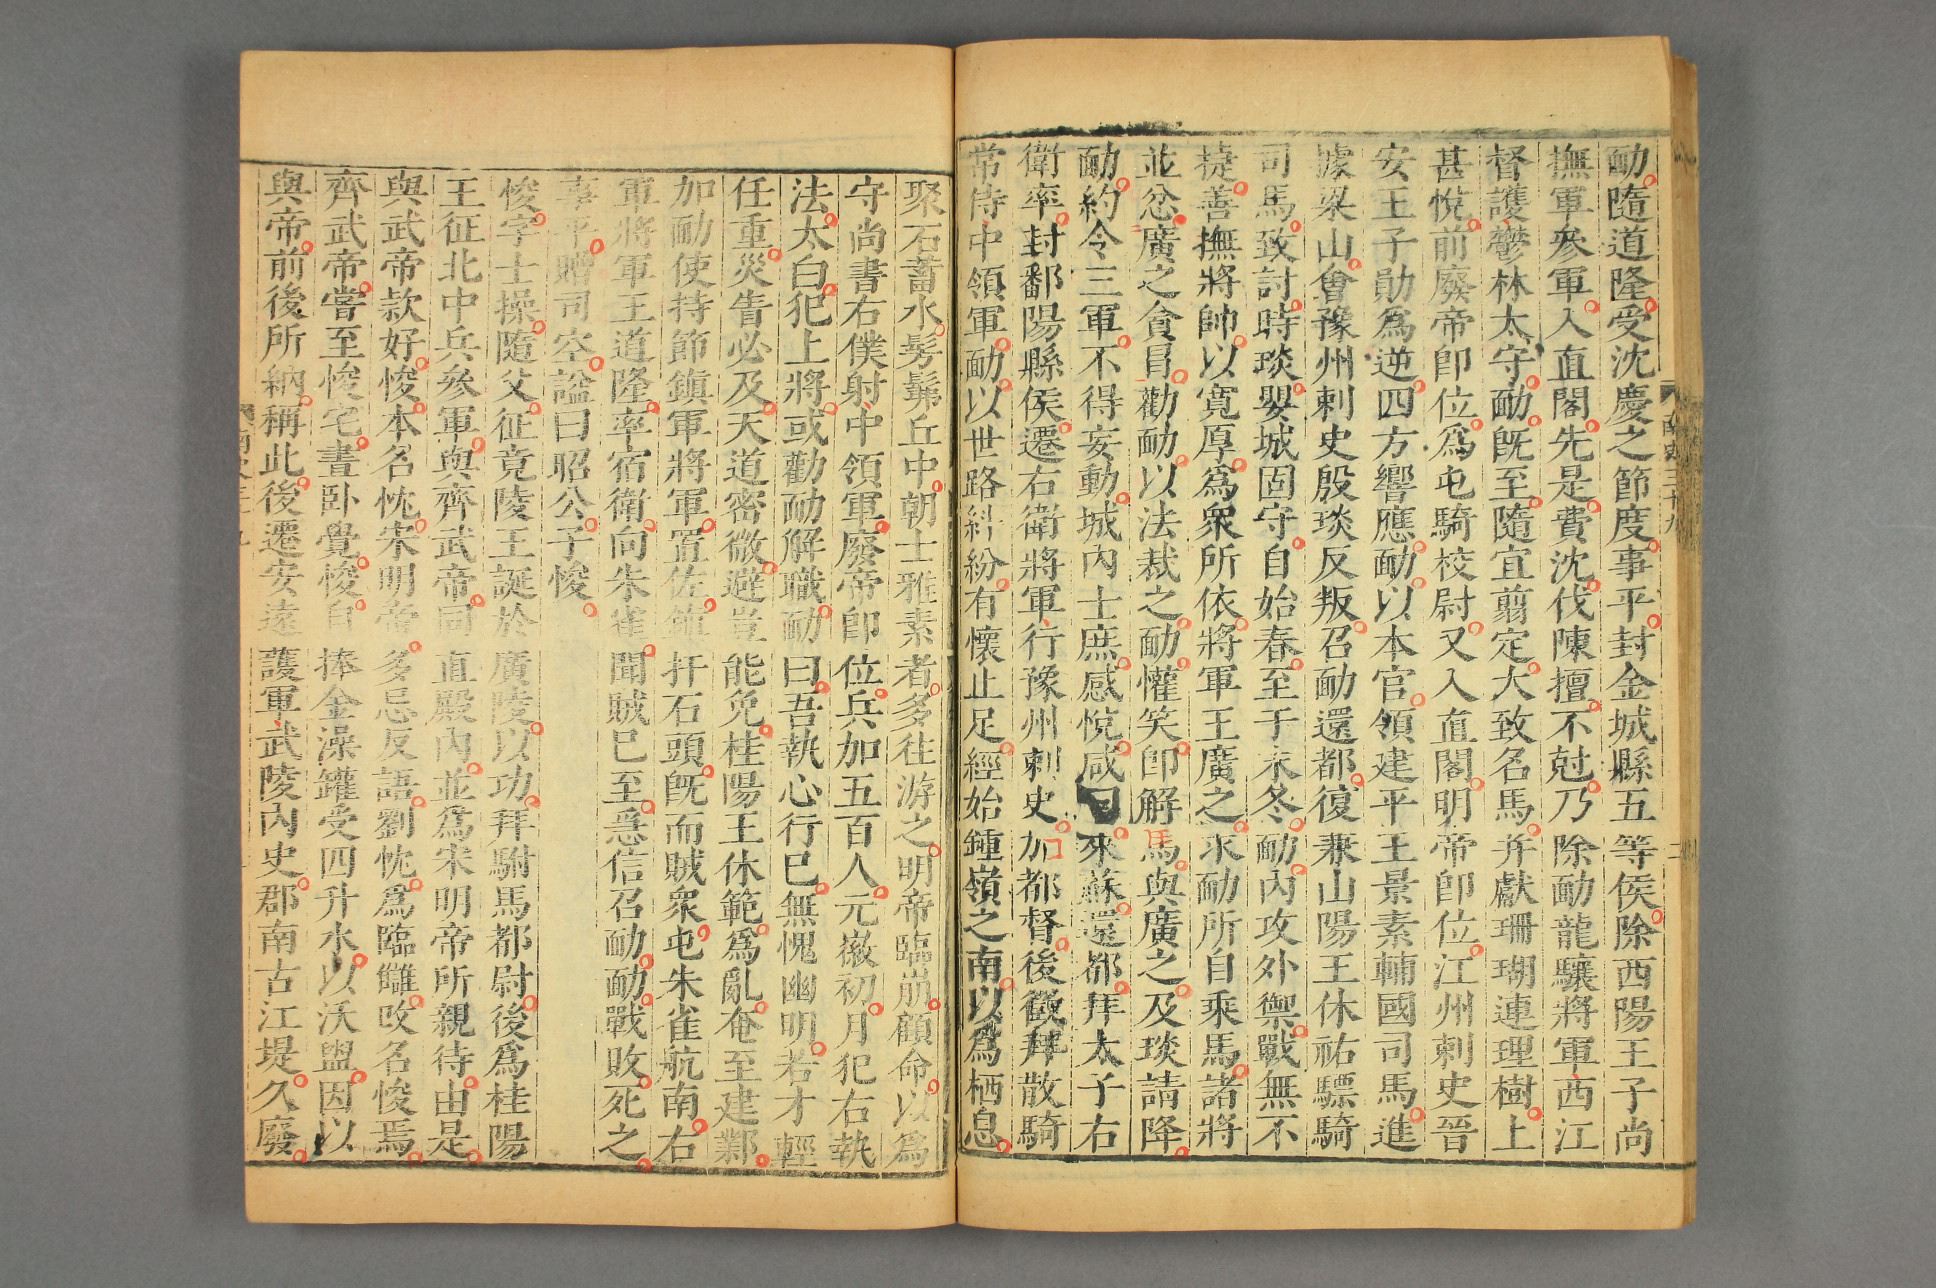 勔隨道隆受沈慶之節度事平封金城縣五等侯除西陽王子尚
撫軍叅軍入直閤先是費沈伐陳檀不尅乃除勔龍驤將軍西江
督護鬱林太守勔旣至隨宜翦定大致名馬并獻珊瑚連理樹上
甚悅前廢帝卽位爲屯騎校尉又入直閤明帝卽位江州刺史晉
安王子勛爲逆四方響應勔以本官領建平王景素輔國司馬進
據梁山會豫州刺史殷琰反叛召勔還都復兼山陽王休祐驃騎
司馬致討時琰嬰城固守自始春至于末冬勔內攻外禦戰無不
捷善撫將帥以寬厚爲衆所依將軍王廣之求勔所自乘馬諸將
並忿廣之貪冒勸勔以法裁之勔懽笑卽解馬與廣之及琰請降
勔約令三軍不得妄動城內士庶感悅咸曰來蘇還都拜太子右
衛率封鄱陽縣侯遷右衛將軍行豫州刺史加都督後徵拜散騎
常侍中領軍勔以世路糾紛有懷止足經始鍾嶺之南以爲栖息
南史三十九
二
聚石蓄水髣髴丘中朝士雅素者多往游之明帝臨崩顧命以爲
守尚書右僕射中領軍廢帝卽位兵加五百人元徽初月犯右執
法太白犯上將或勸勔解職勔曰吾執心行已無愧幽明若才輕
任重災眚必及天道密微避豈能免桂陽王休範爲亂奄至建鄴
加勔使持節鎭軍將軍置佐鎭扞石頭旣而賊衆屯朱雀航南右
軍將軍王道隆率宿衛向朱雀聞賊已至急信召勔勔戰敗死之
事平贈司空謚曰昭公子悛
悛字士操隨父征竟陵王誕於廣陵以功拜駙馬都尉後爲桂陽
王征北中兵叅軍與齊武帝同直殿內並爲宋明帝所親待由是
與武帝款好悛本名忱宋明帝多忌反語劉忱爲臨讎改名悛焉
齊武帝嘗至悛宅晝卧覺悛自捧金澡鑵受四升水以沃盥因以
與帝前後所納稱此後遷安遠護軍武陵內史郡南古江堤久廢